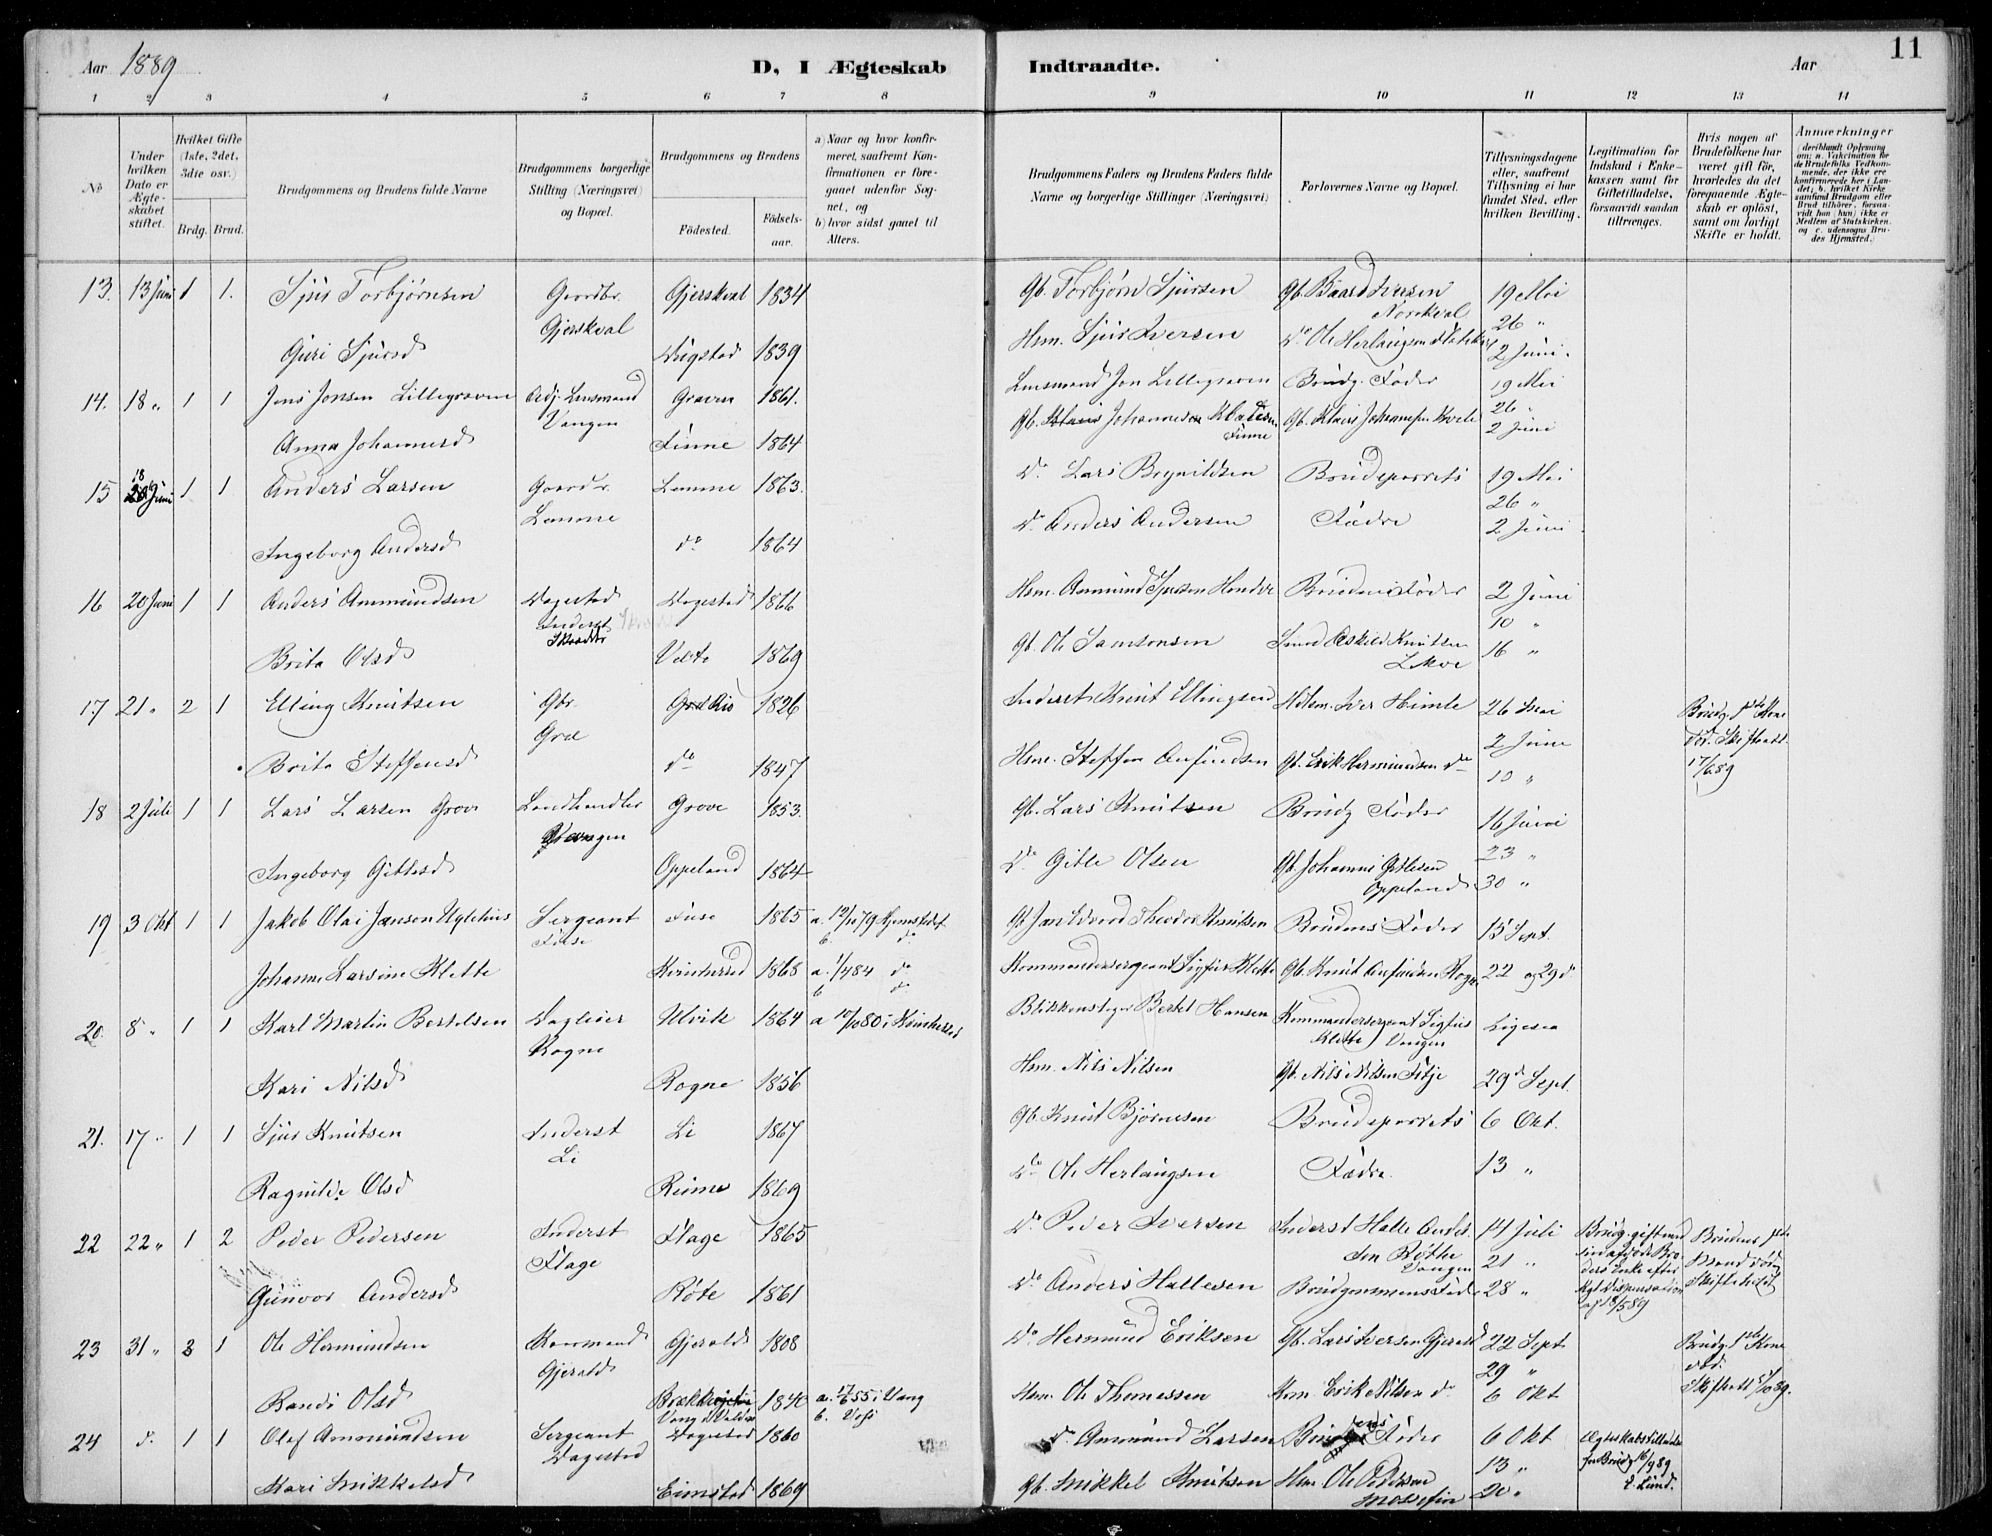 Aar 1889
D, I Ægteskab Indtraadte.
Aar
11
1 2 3 4 5 6 7 8 9 10 11 12 13 14
No
Under hvilken Dato er Ægteskabet stiftet.
Hvilket Gifte (1ste, 2det, 3die osv.)
Brdg. Brud.
Brudgommens og Brudens fulde Navne
Brudgommens borgerlige Stilling (Næringsvei) og Bopæl.
Brudgommens og Brudens
Fødested.
Fødselsaar.
a) Naar og hvor konfirmeret, saafremt Konfirmationen er foregaaet udenfor Sognet, og
b) hvor sidst gaaet til Alters.
Brudgommens Faders og Brudens Faders fulde Navne og borgerlige Stillinger (Næringsvei)
Forlovernes Navne og Bopæl.
Tillysningsdagene eller, saafremt Tillysning ei har fundet Sted, efter hvilken Bevilling.
Legitimation for Indskud i Enkekassen samt for Giftetilladelse, forsaavidt saadan tiltrænges.
Hvis nogen af Brudefolkene har været gift før, hvorledes da det foregaaende Ægteskab er opløst, samt om lovligt Skifte er holdt.
Anmærkninger (deriblandt Oplysning om: a. Vakcination for de Brudefolks Vedkommende, der ikke ere konfirmerede her i Landet; b. hvilket Kirkesamfund Brudgom eller Brud tilhører, forsaavidt han (hun) ikke er Medlem af Statskirken, og c. udensogns Brudes Hjemsted.)
13. 13 Juni 1 1. Sjur Torbjørnsen Gaardbr. Gjerskval Gjerskval 1834 Gb. Torbjørn Sjursen Gb. Baard Iversen Norekval 19 Mai
26 "
Guri Sjursd Dugstad 1839 Hsm. Sjur Iversen Do Ole Herlaugsen 2 Juni.
14. 18 " 1 1 Jens Jonsen Lillegraven Adj. Lensmand Vangen Graven 1861. Lensmand Jon Lillegraven Brudg. Fader 19 Mai
26 "
Anna Johannesd Finne 1864 Gb. Johannes Finne Gb. Klaus Johannesen 2 Juni
15 18 Juni 1 1 Anders Larsen Gaardbr. Lemme Lemme 1863. Do Lars Brynildsen Brudeparrets 19 Mai
26 "
Ingeborg Andersd do 1864 Do Anders Andersen Fædre 2 Juni.
16 20 Juni 1 1 Anders Ammundsen Dagestad Inderst Skrædder Dagestad 1866 Hsm. Ammund Brudens Fader 2 Juni
10 "
Brita Olsd 1869 Gb. Ole Samsonsen Smed Askild Knutsen Lekve 16 "
17 21 " 2 1 Elling Knutsen Gbr. Græ 1826 Inderst Knut Ellingsen Iver Himle 26 Mai Brudg. 1ste Kone død. Skifteatt. 17/6 89
2 Juni
Brita Steffensd do 1847 Hsm. Steffen Anfindsen Gb. Erik Hermundsen do 10 "
18 2 Juli 1 1 Lars Larsen Grove Landhandler Vangen Grove 1853. Gb. Lars Knutsen Brudg Fader 16 Juni
23 "
Ingeborg Gitlesd Oppeland 1864 Do Gitle Olsen Gb. Johannes Gitlesen Oppeland 30 "
19 3 Okt 1 1 Jakob Olai Jansen Nylehus Sergeant Fuse Fuse 1865 a. 12/10 79 Hjemstedet b. do Gb Jan Edvard Theodor Knutsen Brudens Fader 15 Sept.
Johanne Larsine Klette Kvinherred 1868 a. 1/4 84 do b do Kommandersergeant Sigfus Klette Gb. Knut Anfindsen Rogne 22 og 29 do
20. 8 " 1 1 Karl Martin Bertelsen Dagleier Rogne Ulvik 1864 a 10/10 80 i Kvinherred Blikkenslager Bertel Hansen Kommandersergeant Sigfus Klette Vangen Ligesaa
Kari Nilsd Rogne 1856 Hsm. Nils Nilsen Gb. Nils Nilsen Gitje 29de Sept.
21. 17 " 1 1 Sjur Knutsen Inderst Li Li 1867 Gb. Knut Bjørnesen Brudeparrets 6 Okt.
Ragnilde Olsd Reime 1869 Do Ole Herlaugsen Fædre. 13 "
22 22 " 1 2 Peder Pedersen Inderst Flage Flage 1865 Do Peder Iversen Inderst Halle Andersen Røthe Vangen 14 Juli Brudg. gift med sin afdøde Broders Enke efter Kgl Dispensation af 18/5 89 Brudens 1ste Mand død Skifte holdt
21 "
Gunvor Andersd Røte 1861 Do Anders Hallesen Brudgommens Fad. 28 "
23 31 " 3 1 Ole Hermundsen Kaarmand Gjerald Gjerald 1808 Do Hermund Eriksen Gb. Lars Iversen Gjerald 22 Sept Brudg. 1ste Kone død. Skifteatt
29 "
Randi Olsd Vang i Valdres 1840 a. 17/6 55 i Vang b. Vors Hsm. Ole Thomessen Hsm. Erik Nilsen do 6 Okt
24 do 1 1 Olaf Ammundsen Sergeant Dagestad Dagestad 1860 do Ammund Larsen Brudens Fader 6 Okt Ægteskabstilladelse for Brudg 16/9 89 E. Lund.
13 "
Kari Mikkelsd Eimstad 1869 Gb. Mikkel Knutsen Hsm Ole Pedersen 20 "